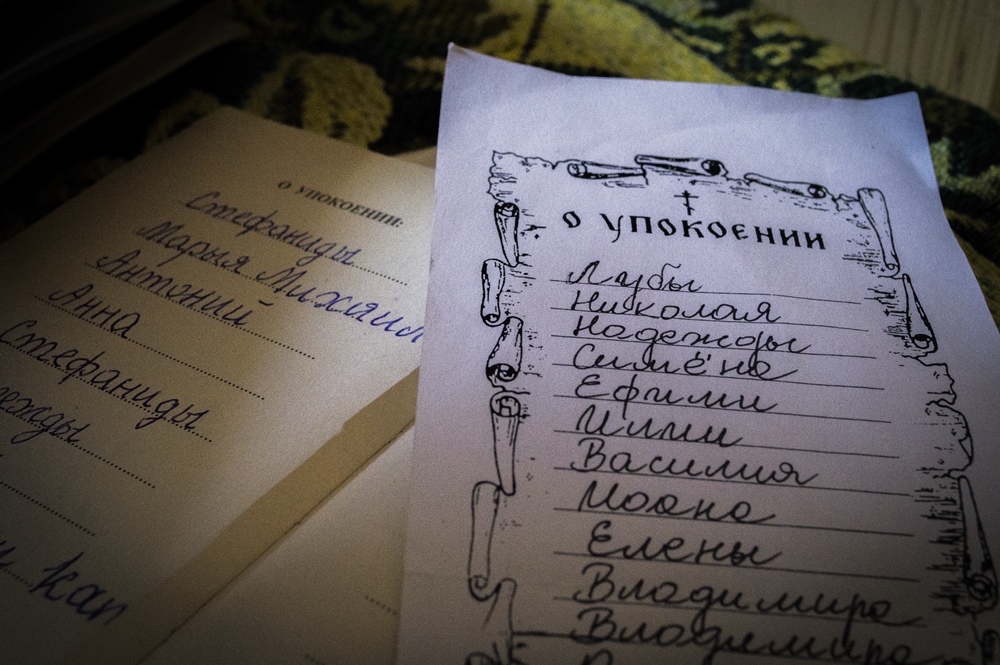 О УПОКОЕНИИ:
Стефаниды
Марыя Михаил
Антоний
Анна
Стефаниды
Кап
о упокоении
Лубы
Николая
Надежды
Симёна
Ефими
Василия
Иоана
Елены
Владимира
Владимира